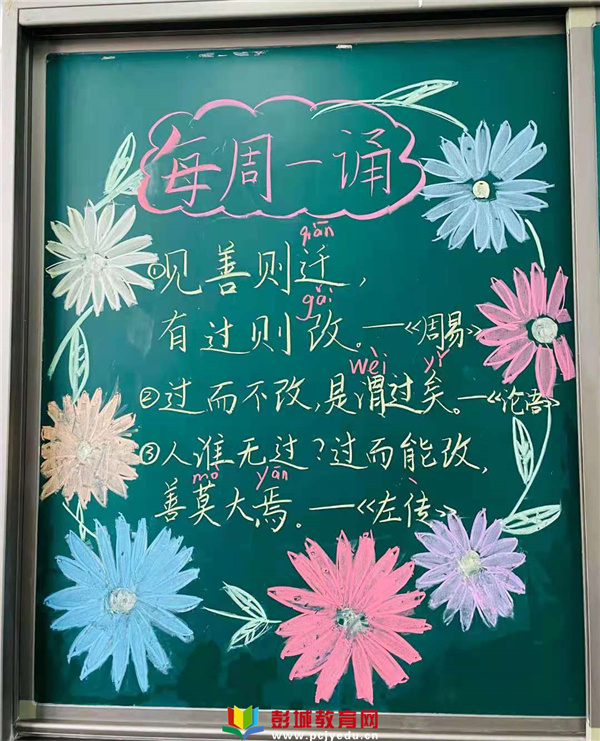 每周一诵
qiān
①见善则迁，
gǎi
有过则改。—《周易》
wèi yǐ
②过而不改，是谓过矣。—《论语》
③人谁无过？过而能改，
mò yān
善莫大焉。—《左传》
彭城教育网
www.pcjyedu.cn